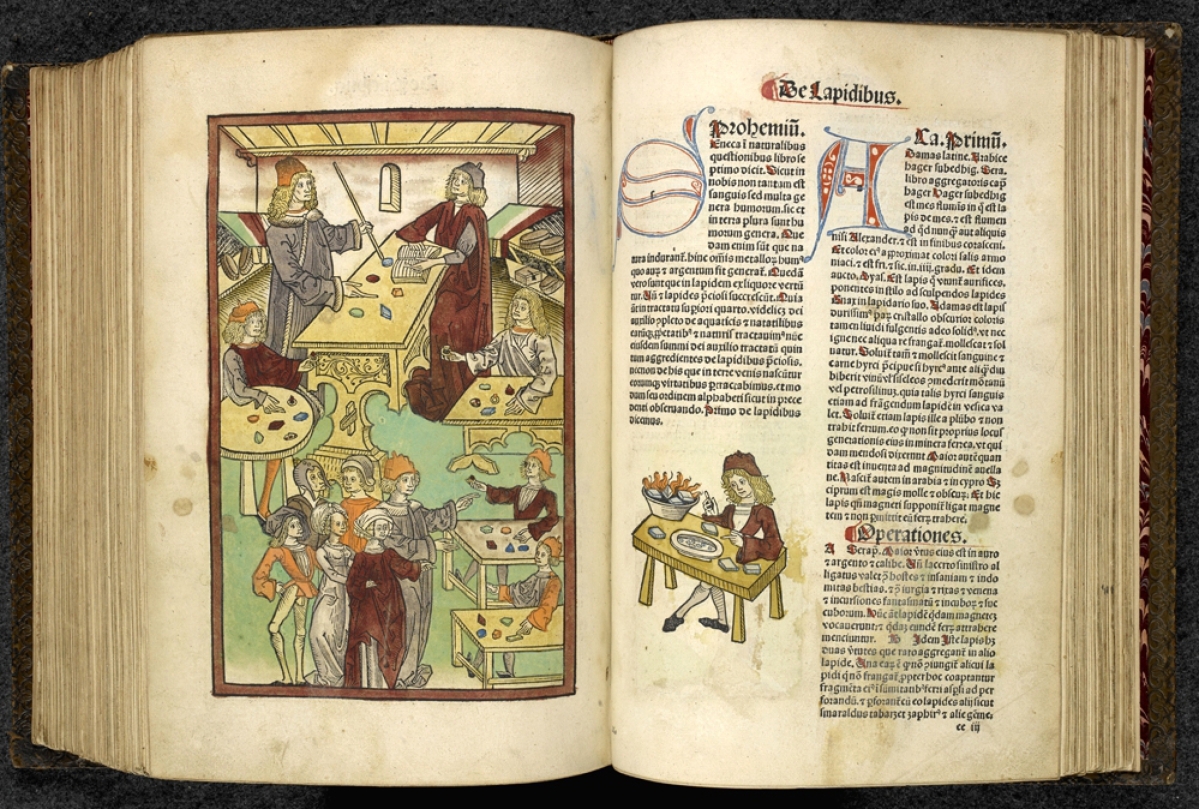 De Lapidibus.
Prohemiũ.
SEneca ĩ naturalibus
questionibus libro se
primo dicit. Sicut in
nobis non tantum est
sanguis sed multa ge
nera humorum. sic et
in terra plura sunt hu
morum genera. Que
dam enim sũt que na
hinc oĩs
argentum sit
vero sunt que in lapidem
lapides p̃ciosi succrescũt. Quia
quarto. videlicz dei
auxilio de aquaticis ⁊ natatilibus
⁊ naturis tractauimꝰ nũc
eiusdem summi dei auxilio tractatũ quin
tum aggredientes de lapidibus p̃ciosis.
necnon de his que in terre venis nascũtur
virtutibus et mo
dum seu ordinem alphabeti sicut in prece
denti obseruando. Primo de lapidibus
dicemus.
Ca. Primũ.
ADamas latine. Arabice
hager subedhig. Sera.
libro aggregatoris cap̃
hager Hager subedhig
est mes flumĩs in q̃ est la
pis de mes. ⁊ est flumen
ad qd nunq̃ aut aliquis
nisi Alexander. ⁊ est in finibus corasceni.
Et color eiꝰ aproximat colori salis armo
niaci. ⁊ est fri. ⁊ sic. in .iiii. gradu. Et idem
aucto. Dyas. Est lapis q̃ vtunt aurifices.
ponentes in stilo ad sculpendos lapides
Enax in lapidario suo. Adamas est lapis
durissimꝰ par cristallo obscurior coloris
tamen liuidi fulgentis adeo solidꝰ. vt nec
igne nec aliqua re frangat. mollescat ⁊ sol
uatur. Soluit tam̃ ⁊ mollescit sanguine ⁊
carne hyrci p̃cipue si hyrcꝰ ante aliq̃diu
biberit vinũ
vel petrosilinũ. quia talis hyrci sanguis
etiam ad frãgendum lapidẽ in vesica va
let. Soluit etiam lapis ille a plũbo ⁊ non
trahit ferrum. eo q non sit proprius locus
generationis eius in minera ferrea. vt qui
dam mendosi dixerunt. Maior autẽ quan
titas est inuenta ad magnitudinẽ auella
ne. Nascit autem in arabia ⁊ in cypro Sz
ciprum est magis molle ⁊ obscur. Et hic
lapis qñ magneti supponit ligat magne
tem ⁊ non p̃mittit eũ ferꝝ trahere.
Operationes.
A Serap. Maior vtus eius est in auro
⁊ argento ⁊ calibe. lacerto sinistro al
ligatus valet hostes ⁊ insaniam ⁊ indo
mitas bestias. iurgia ⁊ rixas ⁊ venena
⁊ incursiones fantasmatũ ⁊ incuboꝝ ⁊ suc
cuborum. lapidẽ q̃dam magnetẽ
vocauerunt: ⁊ q̃daz eundẽ ferꝝ attrahere
menciuntur. B Idem Iste lapis hꝫ
duas v̓tutes que raro aggregant in alio
lapide. Una est q nõ alicui la
pidi qñ nõ frangat. propterhoc coaptantur
fragmẽta eiꝰ ĩ sumitatibꝰ ferri ad per
forandũ. ⁊ cũ eo lapides alij sicut
smaraldus zaphirꝰ ⁊ alie gẽme.
ee iij